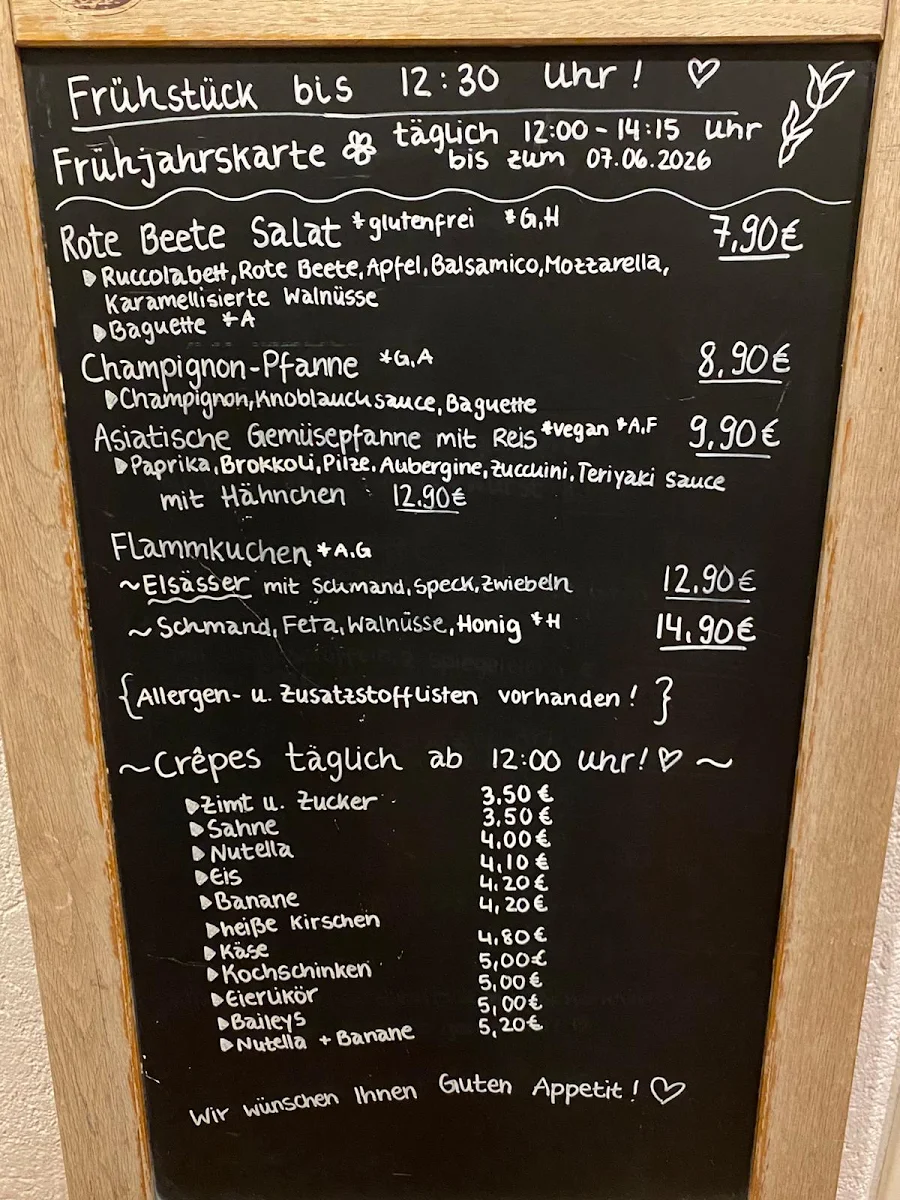 Frühstück bis 12:30 Uhr! ♡
Frühjahrskarte täglich 12:00-14:15 Uhr
bis zum 07.06.2026
Rote Beete Salat *glutenfrei *G,H 7,90€
Ruccolabett, Rote Beete, Apfel, Balsamico, Mozzarella,
Karamellisierte Walnüsse
Baguette *A
Champignon-Pfanne *G,A 8,90€
Champignon, Knoblauchsauce, Baguette
Asiatische Gemüsepfanne mit Reis *vegan *A,F 9,90€
Paprika, Brokkoli, Pilze, Aubergine, Zucchini, Teriyaki sauce
mit Hähnchen 12.90€
Flammkuchen *A,G
~Elsässer mit Schmand, Speck, Zwiebeln 12,90€
~Schmand, Feta, Walnüsse, Honig *H 14,90€
{Allergen- u. Zusatzstofflisten vorhanden!}
~Crêpes täglich ab 12:00 Uhr!♡~
Zimt u. Zucker 3,50€
Sahne 3,50€
Nutella 4,00€
Eis 4,10€
Banane 4,20€
heiße Kirschen 4,20€
Käse 4,80€
Kochschinken 5,00€
Eierlikör 5,00€
Baileys 5,00€
Nutella + Banane 5,20€
Wir wünschen Ihnen Guten Appetit!♡